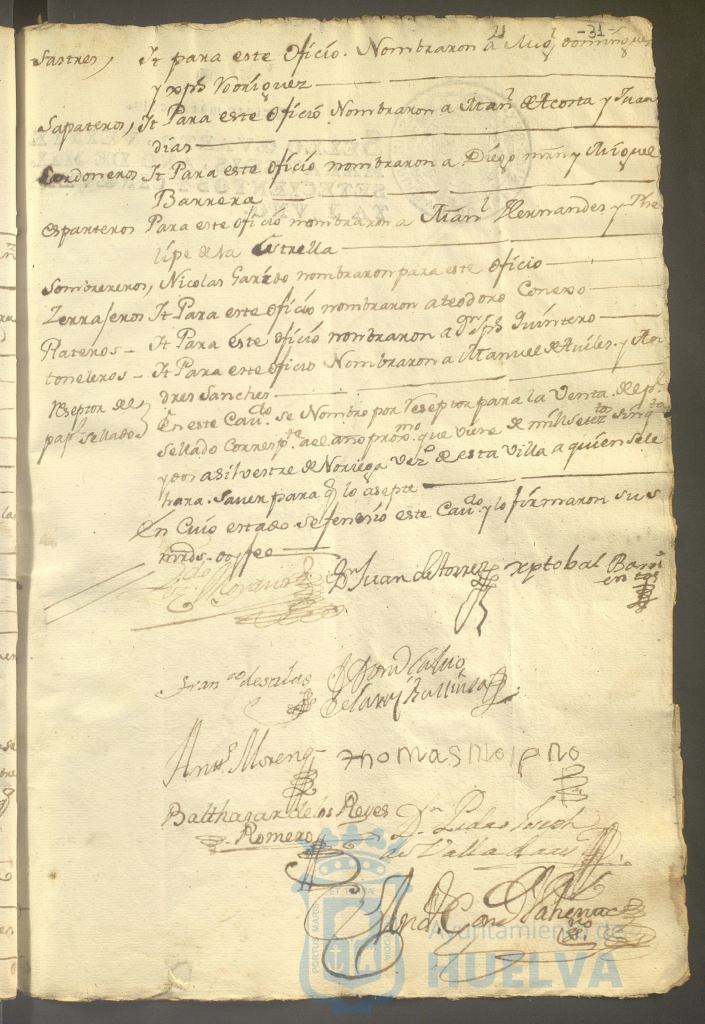 -31-
Sastres, It para este Oficio. Nombraron a Mig.l Domingues
y xpl Rodriguez
Sapateros, It Para este Oficio Nombraron a Man.l de Acosta y Juan
dias
Cordoneros It Para este Oficio nombraron a Diego mrn y Miguel
Barrera
esparteros Para este oficio nombraron a Man.l Hernandes y Phe
lipe de la Estrella
Sombrereros, Nicolas Garrido nombraron para este oficio
Zerrajeros It Para este oficio nombraron a teodoro Conexo
Plateros - It Para este Oficio nombraron a Dn Jph Quintero
toneleros - It Para este oficio Nombraron a Manuel de Aviles y An
dres Sanches
Reseptor del
pap.l sellado
En este Cav.do se Nombro por Reseptor para la Venta de pp.l
sellado Corresp.te a el año prox.mo que viene de mill setez.tos sinq.ta
y dos a silvestre de Noriega Vez.o de esta Villa a quien se le
hara saver para q lo asepte
En Cuio estado se fenesio este Cav.do y lo firmaron sus
mrds. doy fee
Dn Juan de torres xptobal Barri
entos
Fran.co de salas
Ant.o Moreno thomas moreno
Balthazar de los Reyes
Romero
Dn Pedro Joseph
de Valladares
PORTUS MARIS
ET TERRÆ
CUSTODIA
Ayuntamiento de
HUELVA